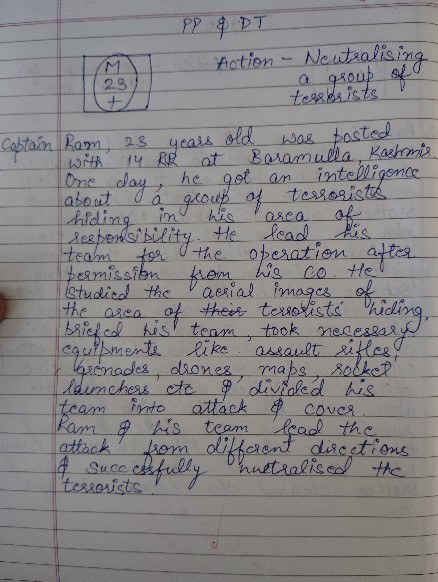 PP & DT
M
23
+
Action - Neutralising
a group of
terrorists
Captain Ram, 23 years old was posted
with 14 RR at Baramulla, Kashmir.
One day, he got an intelligence
about a group of terrorists
hiding in his area of
responsibility. He lead his
team for the operation after
permission from his co. He
studied the aerial images of
the area of their terrorists' hiding,
briefed his team, took necessary
equipments like assault rifles,
grenades, drones, maps, rocket
launchers etc & divided his
team into attack & cover.
Ram & his team lead the
attack from different directions
& successfully nuetralised the
terrorists.